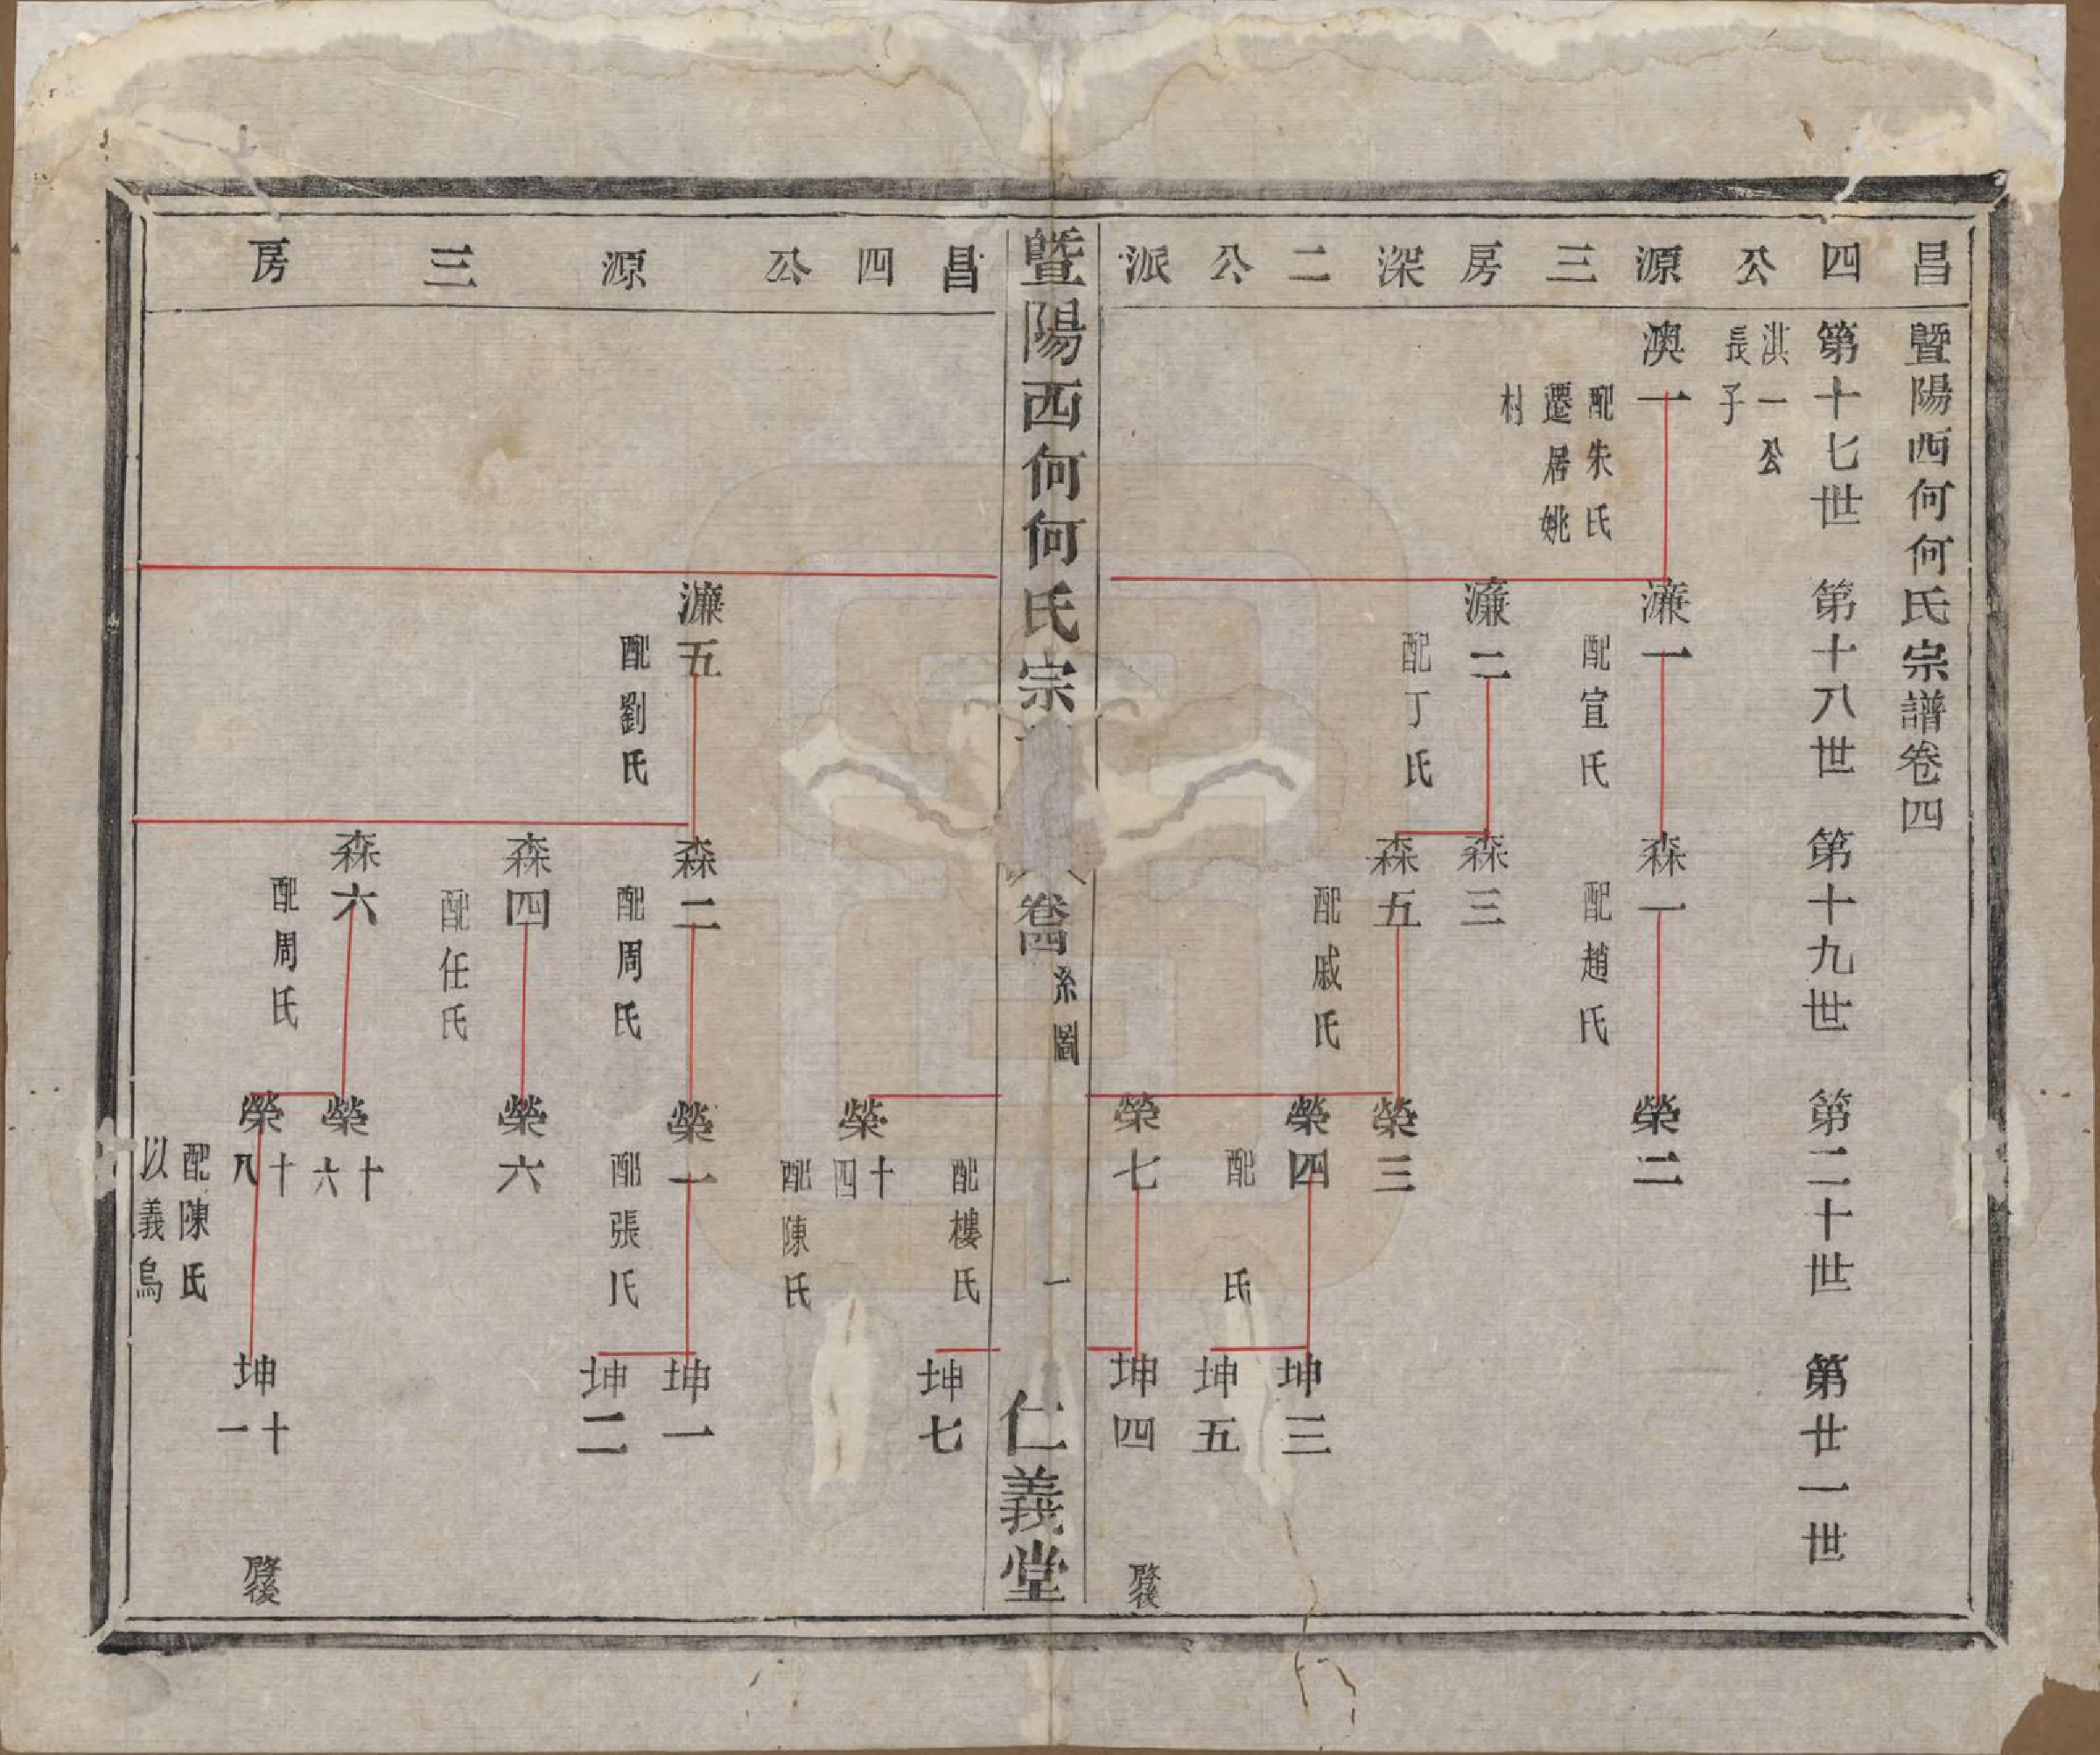 暨陽西何何氏宗譜卷四
昌四公源三房深二公派
第十七世
第十八世
第十九世
第二十世
第廿一世
澳一
淇一公
長子
配朱氏
遷居姚
村
濂一
配宣氏
濂二
配丁氏
森一
配趙氏
森三
森五
配戚氏
榮二
榮三
榮四
配
氏
榮七
坤三
坤五
坤四
啓後
暨陽西何何氏宗
卷四
系圖
一
仁義堂
昌四公源三房
濂五
配劉氏
森二
配周氏
森四
配任氏
森六
配周氏
配樓氏
榮十四
配陳氏
榮一
配張氏
榮六
榮十六
榮十八
配陳氏
以義烏
坤七
坤一
坤二
坤十一
啓後